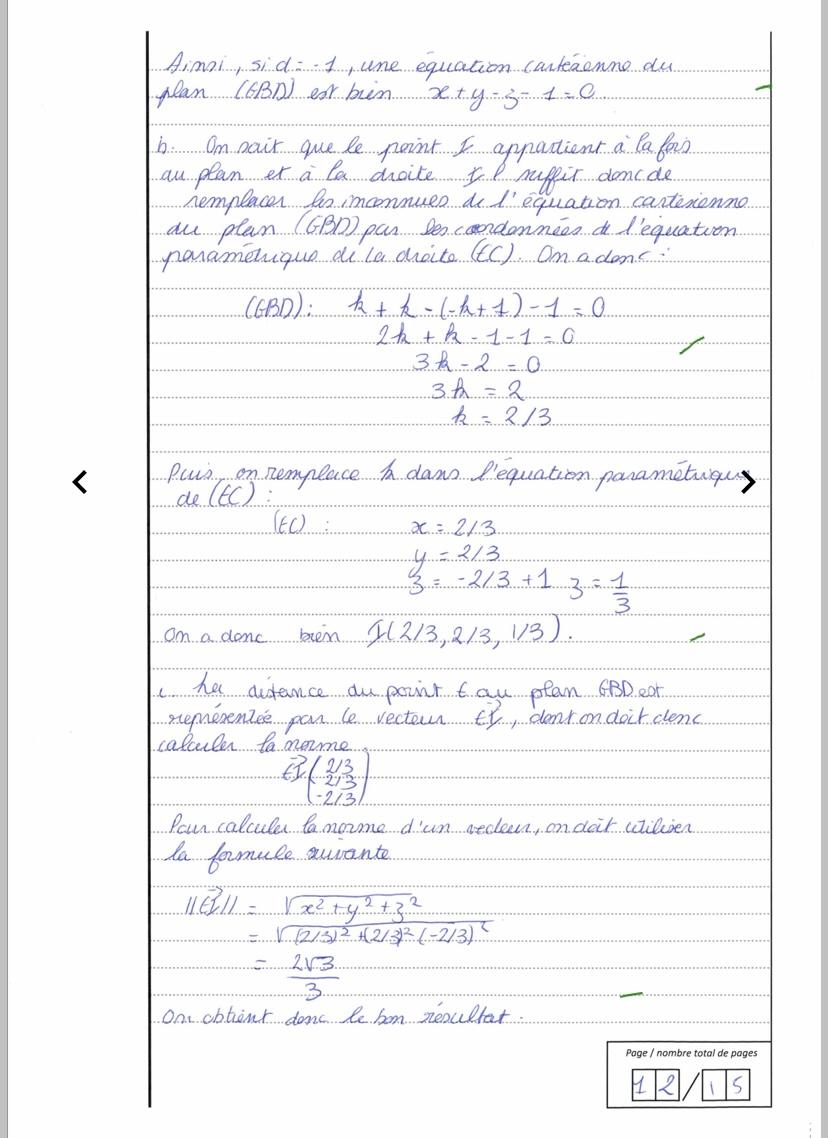 Ainsi, si d = -1, une équation cartésienne du
plan (GBD) est bien x + y - z - 1 = 0.
b. On sait que le point I appartient à la fois
au plan et à la droite Il suffit donc de
remplacer les inconnues de l'équation cartésienne
du plan (GBD) par les coordonnées de l'équation
paramétrique de la droite (EC). On a donc :
(GBD): k + k - (-k + 1) - 1 = 0
2k + k - 1 - 1 = 0
3k - 2 = 0
3k = 2
k = 2/3
Puis, on remplace k dans l'équation paramétrique
de (EC) :
(EC) : x = 2/3
y = 2/3
z = -2/3 + 1 z = 1/3
On a donc bien I(2/3, 2/3, 1/3).
c. La distance du point E au plan GBD est
représentée par le vecteur EI, dont on doit donc
calculer la norme.
EI (2/3
2/3
-2/3)
Pour calculer la norme d'un vecteur, on doit utiliser
la formule suivante
||EI|| = √x² + y² + z²
= √(2/3)² + (2/3)² (-2/3)²
= 2√3/3
On obtient donc le bon résultat.
Page / nombre total de pages
12/15